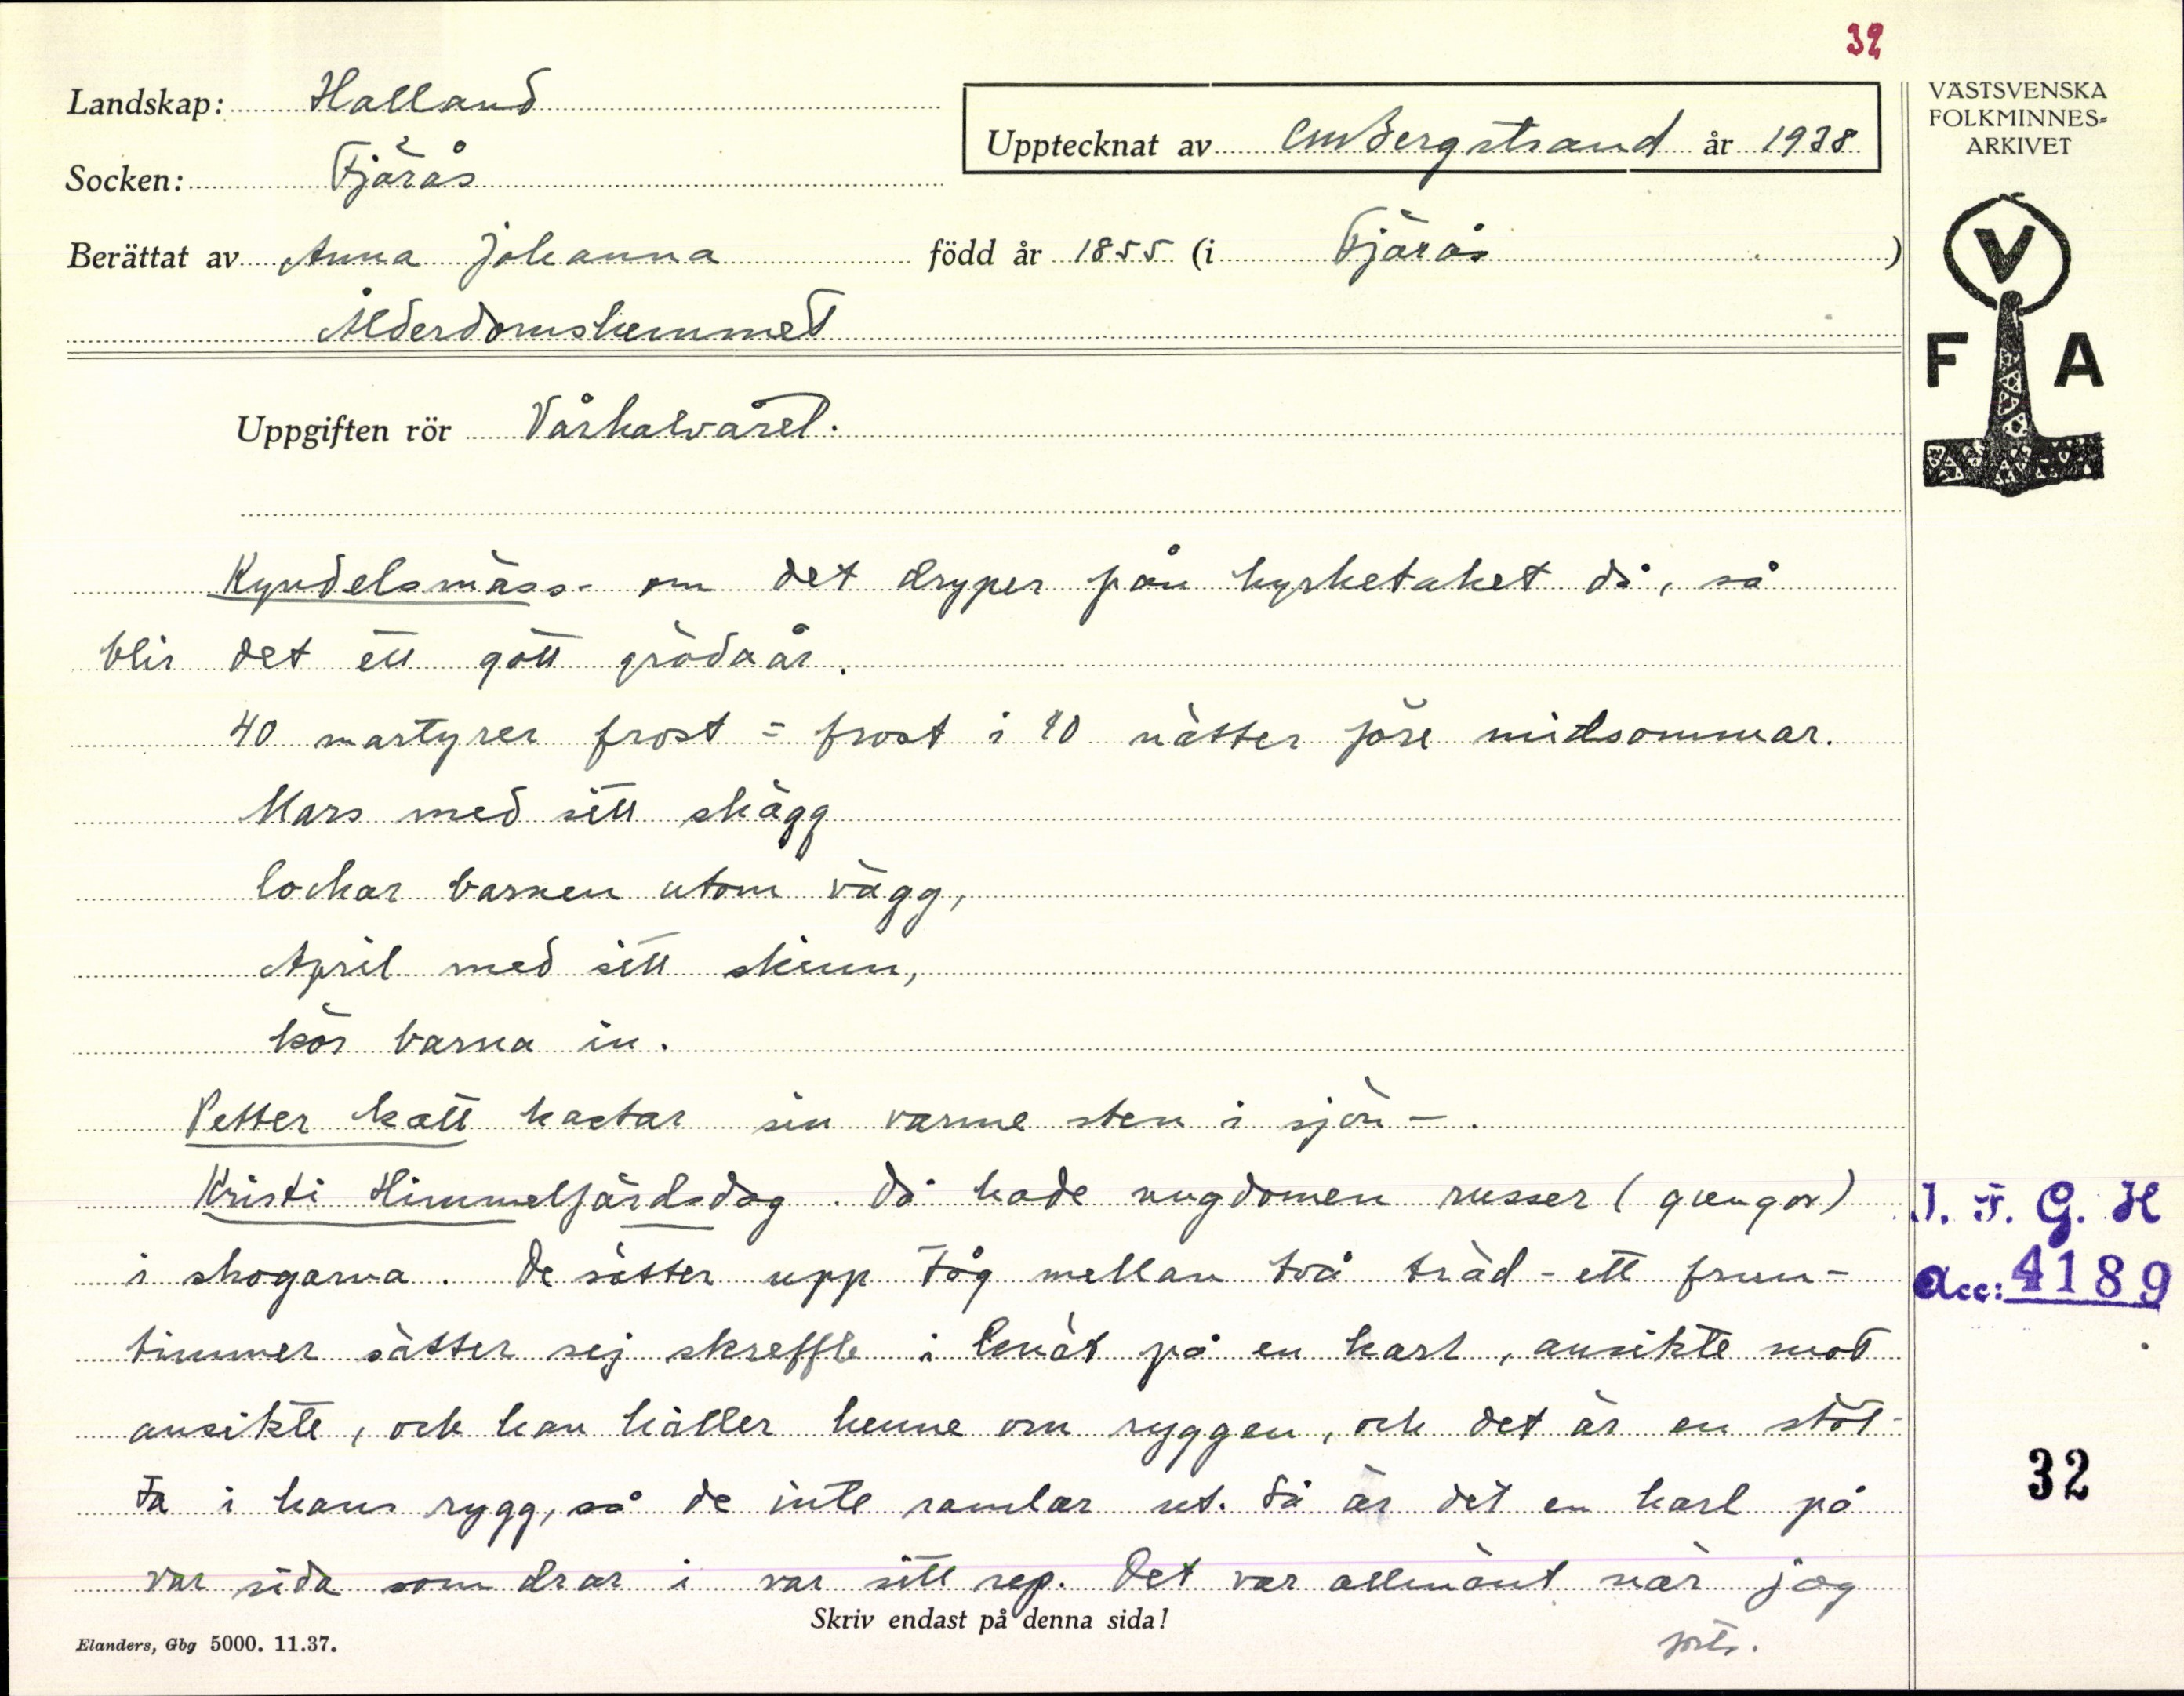 32
Landskap: Halland
Upptecknat av CMBergstrand år 1938
VÄSTSVENSKA
FOLKMINNES=
ARKIVET
Socken: Fjärås
Berättat av Anna Johanna född år 1855 (i Fjärås)
Ålderdomshemmet
V
F A
Uppgiften rör Vårhalvåret.
Kyndelsmäss- om det dryper från kyrketaket då, så
blir det ett gott grödaår.
40 martyrer frost = frost i 40 nätter före midsommar.
Mars med sitt skägg
lockar barnen utom vägg,
April med sitt skinn,
kör barna in.
Petter katt kastar sin varme sten i sjön -.
Kristi Himmelfärdsdag. Då hade ungdomen russer (gungor)
i skogarna. De sätter upp tåg mellan två träd - ett frun-
timmer sätter sej skreffle i knät på en karl, ansikte mot
ansikte, och han håller henne om ryggen, och det är en stöt-
ta i hans rygg, så de inte ramlar ut. Så är det en karl på
var sida som drar i var sitt rep. Det var allmänt när jag
forts.
I. F. G. H
Acc: 4189
32
Skriv endast på denna sida!
Elanders, Gbg 5000. 11.37.